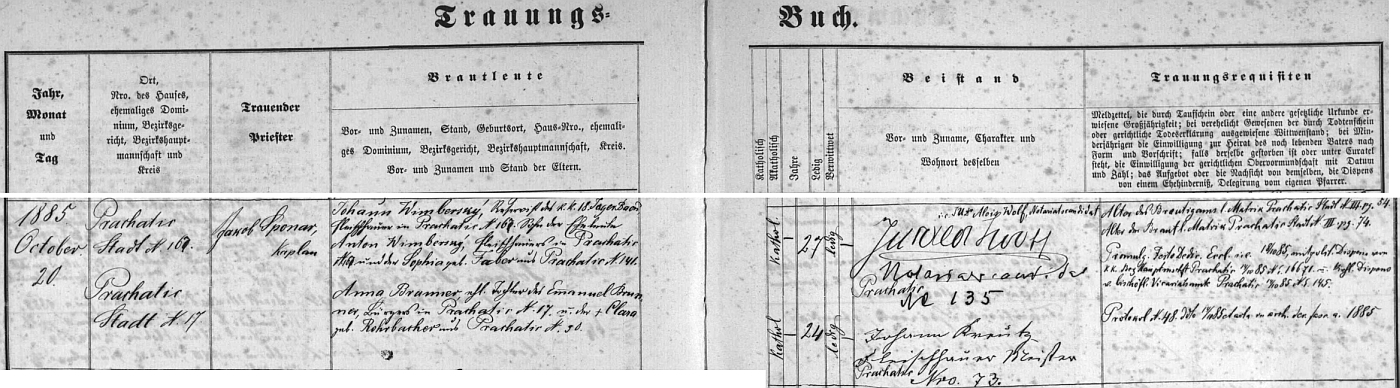 Trauungs=
Buch.
Jahr,
Monat
und
Tag
Ort,
Nro. des Hauses,
ehemaliges Domi-
nium, Bezirksge-
richt, Bezirkshaupt-
mannschaft und
Kreis
Trauender
Priester
Brautleute
Vor- und Zunamen, Stand, Geburtsort, Haus-Nro., ehemali-
ges Dominium, Bezirksgericht, Bezirkshauptmannschaft, Kreis.
Vor- und Zunamen und Stand der Eltern.
Katholisch
Akatholisch
Jahre
Ledig
Verwittwet
Beistand
Vor- und Zuname, Charakter und
Wohnort desselben
Trauungsrequisiten
Meldzettel, die durch Taufschein oder eine andere gesetzliche Urkunde er-
wiesene Großjährigkeit; bei verehelicht Gewesenen der durch Todtenschein
oder gerichtliche Todeserklärung ausgewiesene Wittwenstand; bei Min-
derjährigen die Einwilligung zur Heirat des noch lebenden Vaters nach
Form und Vorschrift; falls derselbe gestorben ist oder unter Curatel
steht, die Einwilligung der gerichtlichen Obervormundschaft mit Datum
und Zahl; das Aufgebot oder die Nachsicht von demselben, die Dispens
von einem Ehehinderniß, Delegirung vom eigenen Pfarrer.
1885
October
20.
Prachatic
Stadt N. 169.
Prachatic
Stadt N. 17
Jakob Sponar,
Kaplan
Johann Wimberský, Reservist des k.k. 18.
Fleischhauer in Prachatic N 169. Sohn des
Anton Wimberský, Fleischhauers in Prachatic
und der Sophia geb. Faber aus Prachatic N. 141.
Anna Brunner, ehl. Tochter des Emanuel Brun-
ner, Bürgers in Prachatic N. 17. u. der + Clara
geb. Rohrbacher aus Prachatic N. 30.
Kathol
27
ledig
Kathol
24
ledig
Alois Wolf, Notariatscandidat
Prachatic
N 135
Johann Kreutz
Fleischhauer Meister
Prachatic
Nro. 73.
Alter des Bräutigams l. Matrix Prachatic Stadt N. III. pg. 54.
Alter der Braut l. Matrix Prachatic Stadt N. III pg. 74.
k.k. Bez. Hauptmannschaft Prachatic
Prachatic
1885